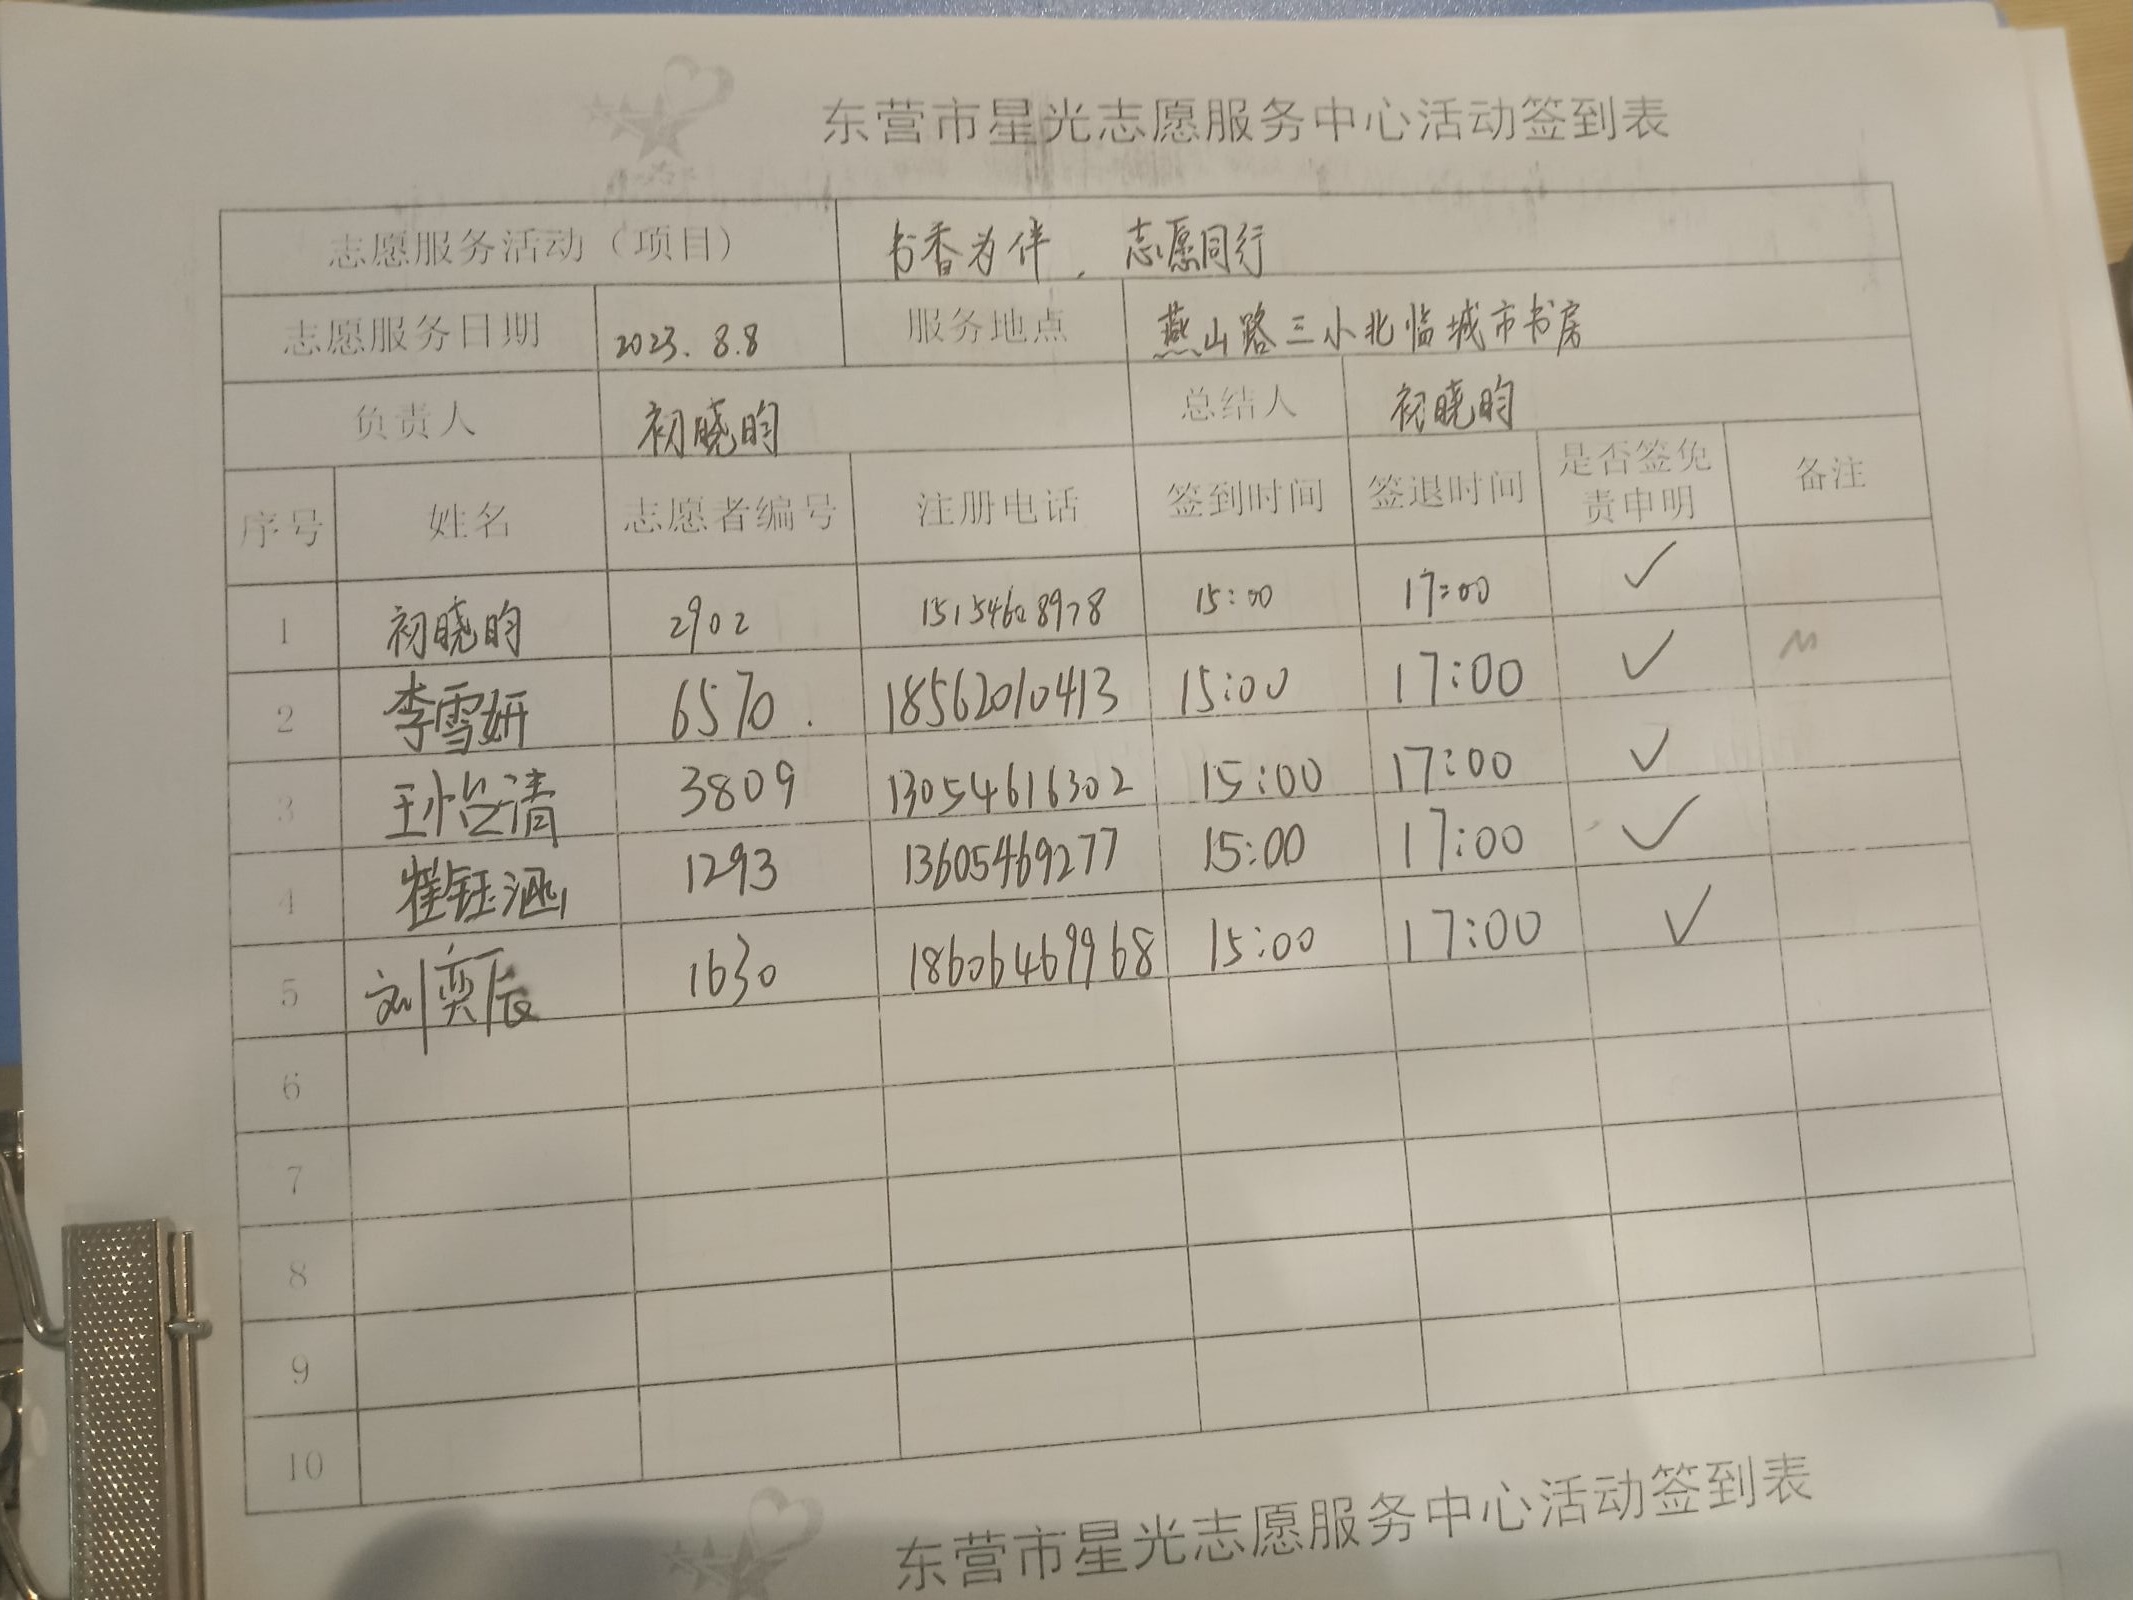 东营市星光志愿服务中心活动签到表
志愿服务活动（项目） 书香为伴，志愿同行
志愿服务日期 2023.8.8 服务地点 燕山路三小北临城市书房
负责人 初晓昀 总结人 初晓昀
序号 姓名 志愿者编号 注册电话 签到时间 签退时间 是否签免责申明 备注
1 初晓昀 2902 15154608978 15:00 17:00 ✓
2 李雪妍 6570. 18562010413 15:00 17:00 ✓
3 王怡清 3809 13054616302 15:00 17:00 ✓
4 崔钰涵 1293 13605469277 15:00 17:00 ✓
5 刘奕辰 1630 18606469968 15:00 17:00 ✓
6
7
8
9
10
东营市星光志愿服务中心活动签到表